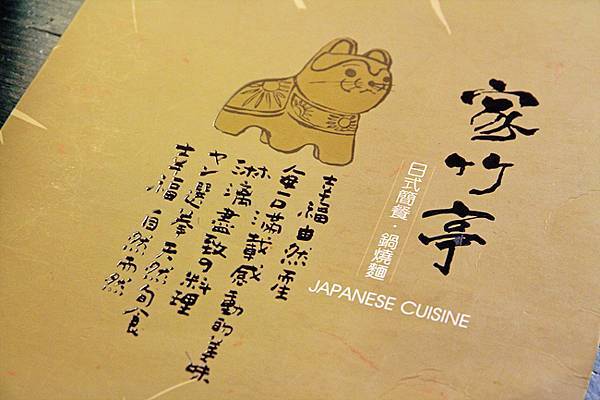 家竹亭
日式簡餐．鍋燒麵
JAPANESE CUISINE
幸福由然而生
每口滿載感動的美味
淋漓盡致の料理
ヤン選拳天然旬食
幸福自然而然